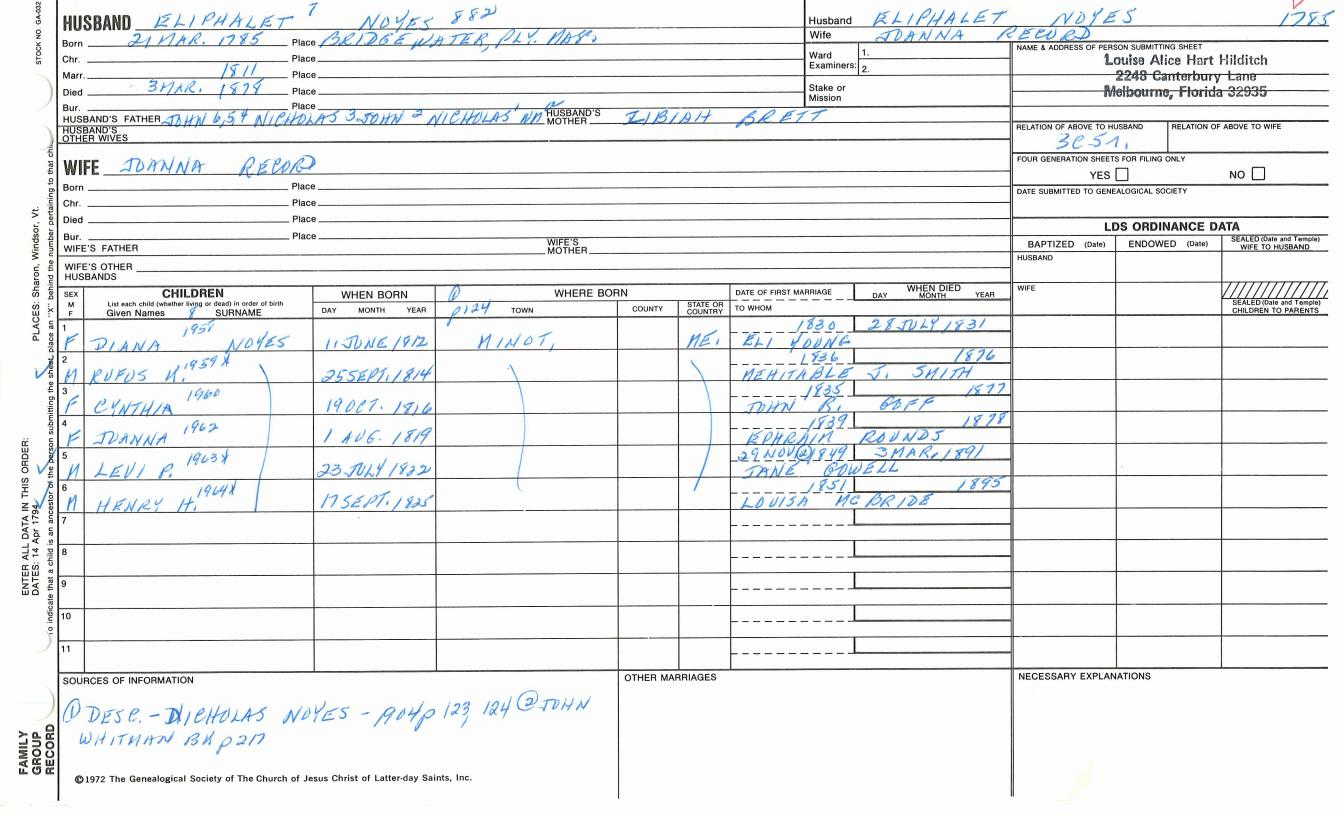 STOCK NO. GA-032
HUSBAND ELIPHALET 7 NOYES 882
Born 21 MAR. 1785 Place BRIDGEWATER, PLY. MAS.
Chr. Place
Marr. 1811 Place
Died 3 MAR. 1878 Place
Bur. Place
HUSBAND'S FATHER JOHN 6,5,4 NICHOLAS 3 JOHN 2 NICHOLAS 1 HUSBAND'S MOTHER IBIAH BRETT
HUSBAND'S OTHER WIVES
Husband ELIPHALET NOYES 1785
Wife JOANNA RECORD
Ward Examiners: 1.
2.
Stake or Mission
NAME & ADDRESS OF PERSON SUBMITTING SHEET
Louise Alice Hart Hilditch
2248 Canterbury Lane
Melbourne, Florida 32935
RELATION OF ABOVE TO HUSBAND RELATION OF ABOVE TO WIFE
3C5r.
FOUR GENERATION SHEETS FOR FILING ONLY
YES NO
DATE SUBMITTED TO GENEALOGICAL SOCIETY
WIFE JOANNA RECORD
Born Place
Chr. Place
Died Place
Bur. Place
WIFE'S FATHER WIFE'S MOTHER
WIFE'S OTHER HUSBANDS
LDS ORDINANCE DATA
BAPTIZED (Date) ENDOWED (Date) SEALED (Date and Temple) WIFE TO HUSBAND
HUSBAND
WIFE
SEALED (Date and Temple) CHILDREN TO PARENTS
SEX M F CHILDREN WHEN BORN ① WHERE BORN DATE OF FIRST MARRIAGE WHEN DIED
List each child (whether living or dead) in order of birth
Given Names 8 SURNAME DAY MONTH YEAR p124 TOWN COUNTY STATE OR COUNTRY TO WHOM DAY MONTH YEAR
1 1957 1830 28 JULY 1831
F DIANA NOYES 11 JUNE 1812 MINOT, ME. ELI YOUNG
2 1959X 1836 1896
M RUFUS K. 25 SEPT. 1814 MEHITABLE J. SMITH
3 1960 1835 1877
F CYNTHIA 19 OCT. 1816 JOHN R. GOFF
4 1962 1839 1878
F JOANNA 1 AUG. 1819 EPHRAIM ROUNDS
5 1963X 29 NOV ② 1849 3 MAR. 1891
M LEVI P. 23 JULY 1822 JANE COWELL
6 1964X 1851 1895
M HENRY H. 17 SEPT. 1825 LOUISA MCBRIDE
7
8
9
10
11
SOURCES OF INFORMATION
① DESC. - NICHOLAS NOYES - 1904 p 123, 124 ② JOHN
WHITMAN BK p 217
©1972 The Genealogical Society of The Church of Jesus Christ of Latter-day Saints, Inc.
OTHER MARRIAGES
NECESSARY EXPLANATIONS
FAMILY GROUP RECORD
ENTER ALL DATA IN THIS ORDER:
DATES: 14 Apr 1794
PLACES: Sharon, Windsor, Vt.
To indicate that a child is an ancestor of the person submitting the sheet, place an "X" behind the number pertaining to that